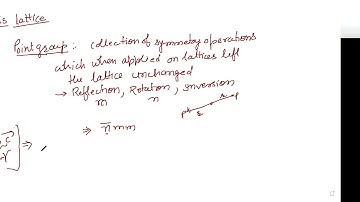 is lattice
Point group : collection of symmetry operations
which when applied on lattices left
the lattice unchanged
→ Reflection, Rotation, inversion
m n
⇒ n̅ m m